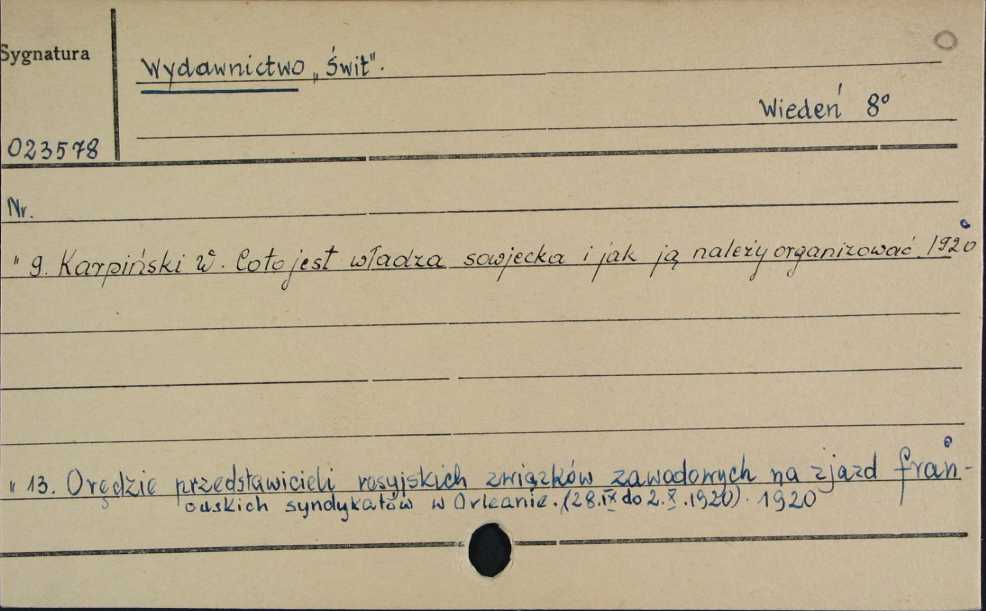 Sygnatura
Wydawnictwo „Świt".
Wiedeń 8°
023578
Nr.
" 9. Karpiński W. Co to jest władza sowjecka i jak ją należy organizować. 1920
" 13. Orędzie przedstawicieli rosyjskich związków zawodowych na zjazd fran-
cuskich syndykatów w Orleanie. (28.IX do 2.X.1920). 1920